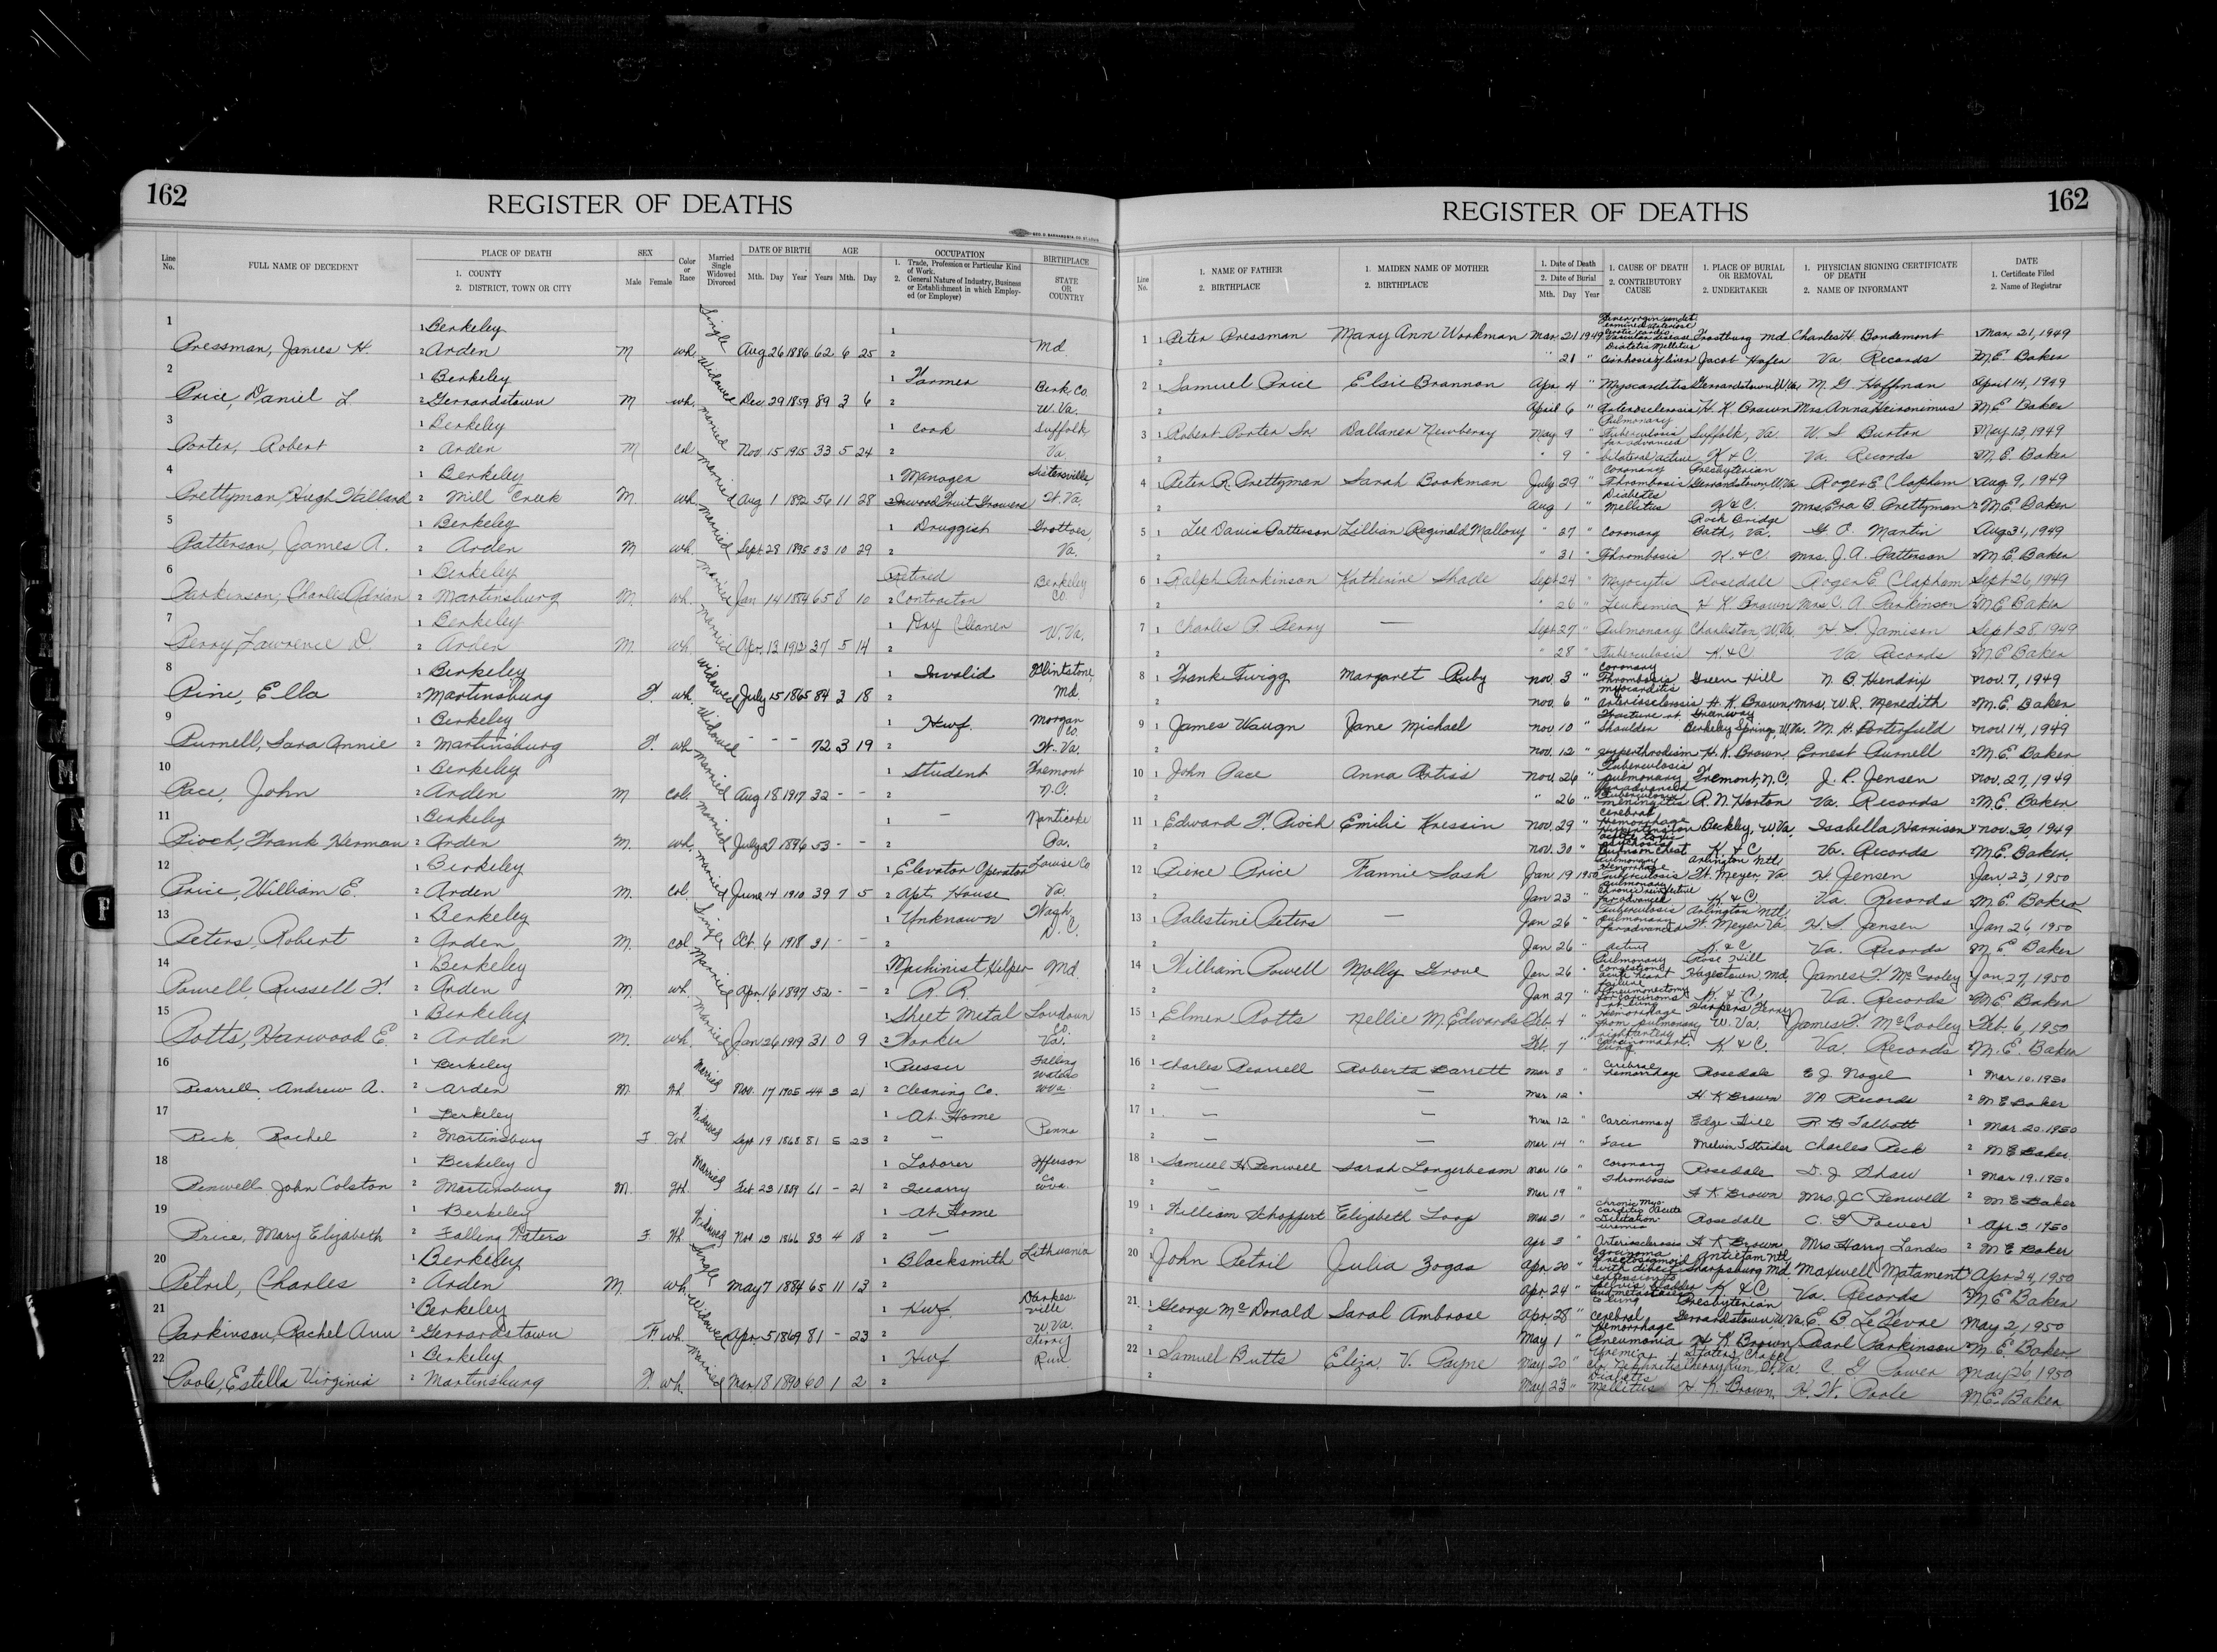 162
REGISTER OF DEATHS
Line No.
FULL NAME OF DECEDENT
PLACE OF DEATH
1. COUNTY
2. DISTRICT, TOWN OR CITY
SEX
Male Female
Color or Race
Married Single Widowed Divorced
DATE OF BIRTH
Mth. Day Year
AGE
Years Mth. Day
OCCUPATION
1. Trade, Profession or Particular Kind of Work.
2. General Nature of Industry, Business or Establishment in which Employed (or Employer)
BIRTHPLACE
STATE OR COUNTRY
1 Pressman, James H. 1 Berkeley 2 Arden M wh. Single Aug 26 1886 62 6 25 1 2 Md.
2 Price, Daniel L. 1 Berkeley 2 Gerrardstown M wh. Widowed Dec 29 1859 89 3 6 1 Farmer 2 Berk. Co. W. Va.
3 Porter, Robert 1 Berkeley 2 Arden M Col. Married Nov. 15 1915 33 5 24 1 Cook 2 Suffolk Va.
4 Prettyman, Hugh Willard 1 Berkeley 2 Mill Creek M. wh. Married Aug 1 1892 56 11 28 1 Manager 2 Inwood Fruit Growers Sistersville W. Va.
5 Patterson, James A. 1 Berkeley 2 Arden M wh. Married Sept 28 1895 53 10 29 1 Druggist 2 Grottoes, Va.
6 Parkinson, Charles Adrian 1 Berkeley 2 Martinsburg M. wh. Married Jan 14 1884 65 8 10 Retired 2 Contractor Berkeley Co.
7 Perry, Lawrence D. 1 Berkeley 2 Arden M. wh. Married Apr. 13 1912 37 5 14 1 Dry Cleaner 2 W. Va.
8 Pine, Ella 1 Berkeley 2 Martinsburg F. wh. Widowed July 15 1865 84 3 18 1 Invalid 2 Flintstone, Md.
9 Purnell, Sara Annie 1 Berkeley 2 Martinsburg F. wh. Widowed - - - 72 3 19 1 Hwf. 2 Morgan Co. W. Va.
10 Pace, John 1 Berkeley 2 Arden M Col. Married Aug 18 1917 32 - - 1 Student 2 Fremont N.C.
11 Pioch, Frank Herman 1 Berkeley 2 Arden M. wh. Married July 27 1896 53 - - 1 - 2 Nanticoke Pa.
12 Price, William E. 1 Berkeley 2 Arden M. Col. Married June 14 1910 39 7 5 1 Elevator Operator 2 Apt. House Louise Co Va
13 Peters, Robert 1 Berkeley 2 Arden M. Col. Single Oct. 6 1918 31 - - 1 Unknown 2 Wash. D.C.
14 Powell, Russell F. 1 Berkeley 2 Arden M. wh. Married Apr. 16 1897 52 - - Machinist Helper 2 R.R. Md.
15 Potts, Harwood E. 1 Berkeley 2 Arden M. wh. Married Jan 26 1919 31 0 9 1 Sheet Metal 2 Worker Loudoun Co. Va.
16 Pearrell, Andrew A. 1 Berkeley 2 Arden M Wh Married Nov. 17 1905 44 3 21 1 Presser 2 Cleaning Co. Falling Waters W Va
17 Peck, Rachel 1 Berkeley 2 Martinsburg F Wh Widowed Sept 19 1868 81 5 23 1 At Home 2 — Penna
18 Penwell John Colston 1 Berkeley 2 Martinsburg M. Wh. Married Feb 23 1889 61 - 21 1 Laborer 2 Quarry Jefferson Co W Va.
19 Price, Mary Elizabeth 1 Berkeley 2 Falling Waters F. Wh Widowed Nov 13 1866 83 4 18 1 At Home 2 —
20 Petril, Charles 1 Berkeley 2 Arden M. wh. Single May 7 1884 65 11 13 1 Blacksmith 2 Lithuania
21 Parkinson, Rachel Ann 1 Berkeley 2 Gerrardstown F. wh. Widowed Apr. 5 1869 81 - 23 1 Hwf. 2 Darkesville W Va.
22 Poole, Estella Virginia 1 Berkeley 2 Martinsburg F. wh. Married Mar. 18 1890 60 1 2 1 Hwf 2 Cherry Run
162
REGISTER OF DEATHS
Line No.
1. NAME OF FATHER
2. BIRTHPLACE
1. MAIDEN NAME OF MOTHER
2. BIRTHPLACE
1. Date of Death
2. Date of Burial
Mth. Day Year
1. CAUSE OF DEATH
2. CONTRIBUTORY CAUSE
1. PLACE OF BURIAL OR REMOVAL
2. UNDERTAKER
1. PHYSICIAN SIGNING CERTIFICATE OF DEATH
2. NAME OF INFORMANT
DATE
1. Certificate Filed
2. Name of Registrar
1 1 Peter Pressman Mary Ann Workman Mar. 21 1949 Vascular disease Diabetis Mellitus Frostburg Md Charles H. Bondemont 1 Mar. 21, 1949
2 " 21 " Cirrhosis of liver Jacob Hafer Va Records 2 M.E. Baker
2 1 Samuel Price Elsie Brannon Apr 4 " Myocarditis Gerrardstown, W. Va. M. G. Hoffman April 14, 1949
2 April 6 " Arterosclerosis H. K. Brown Mrs Anna Heironimus 2 M.E. Baker
3 1 Robert Porter Sr. Dallaner Newberry May 9 " Pulmonary Tuberculosis far advanced Suffolk, Va. W. S. Burton May 13, 1949
2 " 9 " bilateral active K & C Va. Records 2 M. E. Baker
4 1 Peter R. Prettyman Sarah Bookman July 29 " Coronary Thrombosis Presbyterian Gerrardstown W. Va Roger E Clapham Aug 9, 1949
2 Aug 1 " Diabetes Mellitus K & C. Mrs. Era B Prettyman 2 M.E. Baker
5 1 Lee Davis Patterson Lillian Reginald Mallory " 27 " Coronary Rock Bridge Bath, Va. G. O. Martin Aug 31, 1949
2 " 31 " Thrombosis K. & C. Mrs. J. A. Patterson 2 M. E. Baker
6 1 Ralph Parkinson Katherine Shade Sept 24 " Myocytis Rosedale Roger E Clapham Sept 26, 1949
2 " 26 " Leukemia H K. Brown Mrs C. A. Parkinson 2 M E Baker
7 1 Charles P. Perry — Sept 27 " Pulmonary Charleston, W. Va. H. S. Jamison Sept 28, 1949
2 " 28 " Tuberculosis K & C Va Records 2 M E Baker
8 1 Frank Twigg Margaret Ruby Nov. 3 " Coronary Thrombosis Green Hill N. B. Hendrix Nov. 7, 1949
2 Nov. 6 " myocarditis Arteriosclerosis H. K. Brown Mrs. W. R. Meredith 2 M. E. Baker
9 1 James Waugn Jane Michael Nov. 10 " Fracture of Shoulder Greenway Berkeley Springs, W. Va. M. H. Porterfield Nov 14, 1949
2 Nov. 12 " H. K. Brown Ernest Purnell 2 M. E. Baker
10 1 John Pace Anna Artiss Nov. 26 " Tuberculosis pulmonary far advanced Fremont, N.C. J. P. Jensen Nov. 27, 1949
2 " 26 " Tuberculosis meningitis R. N. Horton Va. Records 2 M. E. Baker
11 1 Edward F. Pioch Emilie Kressin Nov. 29 " Cerebral Hemorrhage Hypertension Beckley, W. Va Isabella Harrison 1 Nov. 30, 1949
2 Nov. 30 " K. & C. Va. Records 2 M.E. Baker.
12 1 Pierce Price Fannie Lash Jan 19 1950 Pulmonary Hemorrhage Tuberculosis Arlington Ntl. Ft. Meyer, Va. H Jensen 1 Jan. 23, 1950
2 Jan 23 " pulmonary chronic far advanced K. & C. Va. Records 2 M. E. Baker
13 1 Palestine Peters — Jan 26 " Tuberculosis pulmonary far advanced Arlington Ntl. Ft. Meyer Va H. S. Jensen 1 Jan 26, 1950
2 Jan 26 " active K. & C. Va. Records 2 M. E. Baker
14 1 William Powell Molly Grove Jan 26 " Pulmonary Congestion heart failure Rose Hill Hagerstown, Md. James F McCooley 1 Jan 27, 1950
2 Jan 27 " Pneumonectomy for carcinoma of lung K. & C. Va. Records 2 M.E. Baker
15 1 Elmer Potts Nellie M. Edwards Feb. 4 " Hemorrhage from pulmonary right artery Harpers Ferry W. Va. James F. McCooley 1 Feb. 6, 1950
2 Feb. 7 " Carcinoma rt. lung K & C. Va. Records 2 M. E. Baker
16 1 Charles Pearrell Roberta Barrett Mar 8 " Cerebral Hemorrhage Rosedale E J. Nagel 1 Mar 10. 1950
2 — — Mar 12 " H K Brown VA Records 2 M E Baker
17 1 — — Mar 12 " Carcinoma of Edge Hill R B Talbott 1 Mar 20. 1950
2 — — Mar 14 " Face Melvin T Strider Charles Peck 2 M E Baker.
18 1 Samuel H Penwell Sarah Longerbeam Mar 16 " Coronary Thrombosis Rosedale D. J Shaw 1 Mar 19. 1950
2 — — Mar 19 " H K Brown Mrs. J C Penwell 2 M E Baker
19 1 William Schoppert Elizabeth Loop Mar 31 " Chronic Myocarditis Acute Dilitation Uremia Rosedale C. G Power 1 Apr 3 1950
2 Apr 3 " Arteriosclerosis H K Brown Mrs Harry Landis 2 M E Baker
20 1 John Petril Julia Zogas Apr. 20 " Carcinoma Rectosigmoid with direct extension to Antietam Ntl. Sharpsburg Md. Maxwell Matament Apr 24, 1950
2 Apr. 24 " pelvis bladder and metastases to lung K. & C. Va. Records 2 M E Baker
21 1 George McDonald Sarah Ambrose Apr. 28 " Cerebral Hemorrhage Presbyterian Gerrardstown W. Va. E. B LeFevre May 2, 1950
2 May 1 " Pneumonia H K Brown Carl Parkinson 2 M. E. Baker
22 1 Samuel Butts Eliza. V. Payne May 20 " Uremia Chr. Nephretis Chapel Cherry Run, W. Va. C G Power May 26, 1950
2 May 23 " Diabetis Mellitus H. K. Brown H. W. Poole M.E. Baker
M
N
O
P